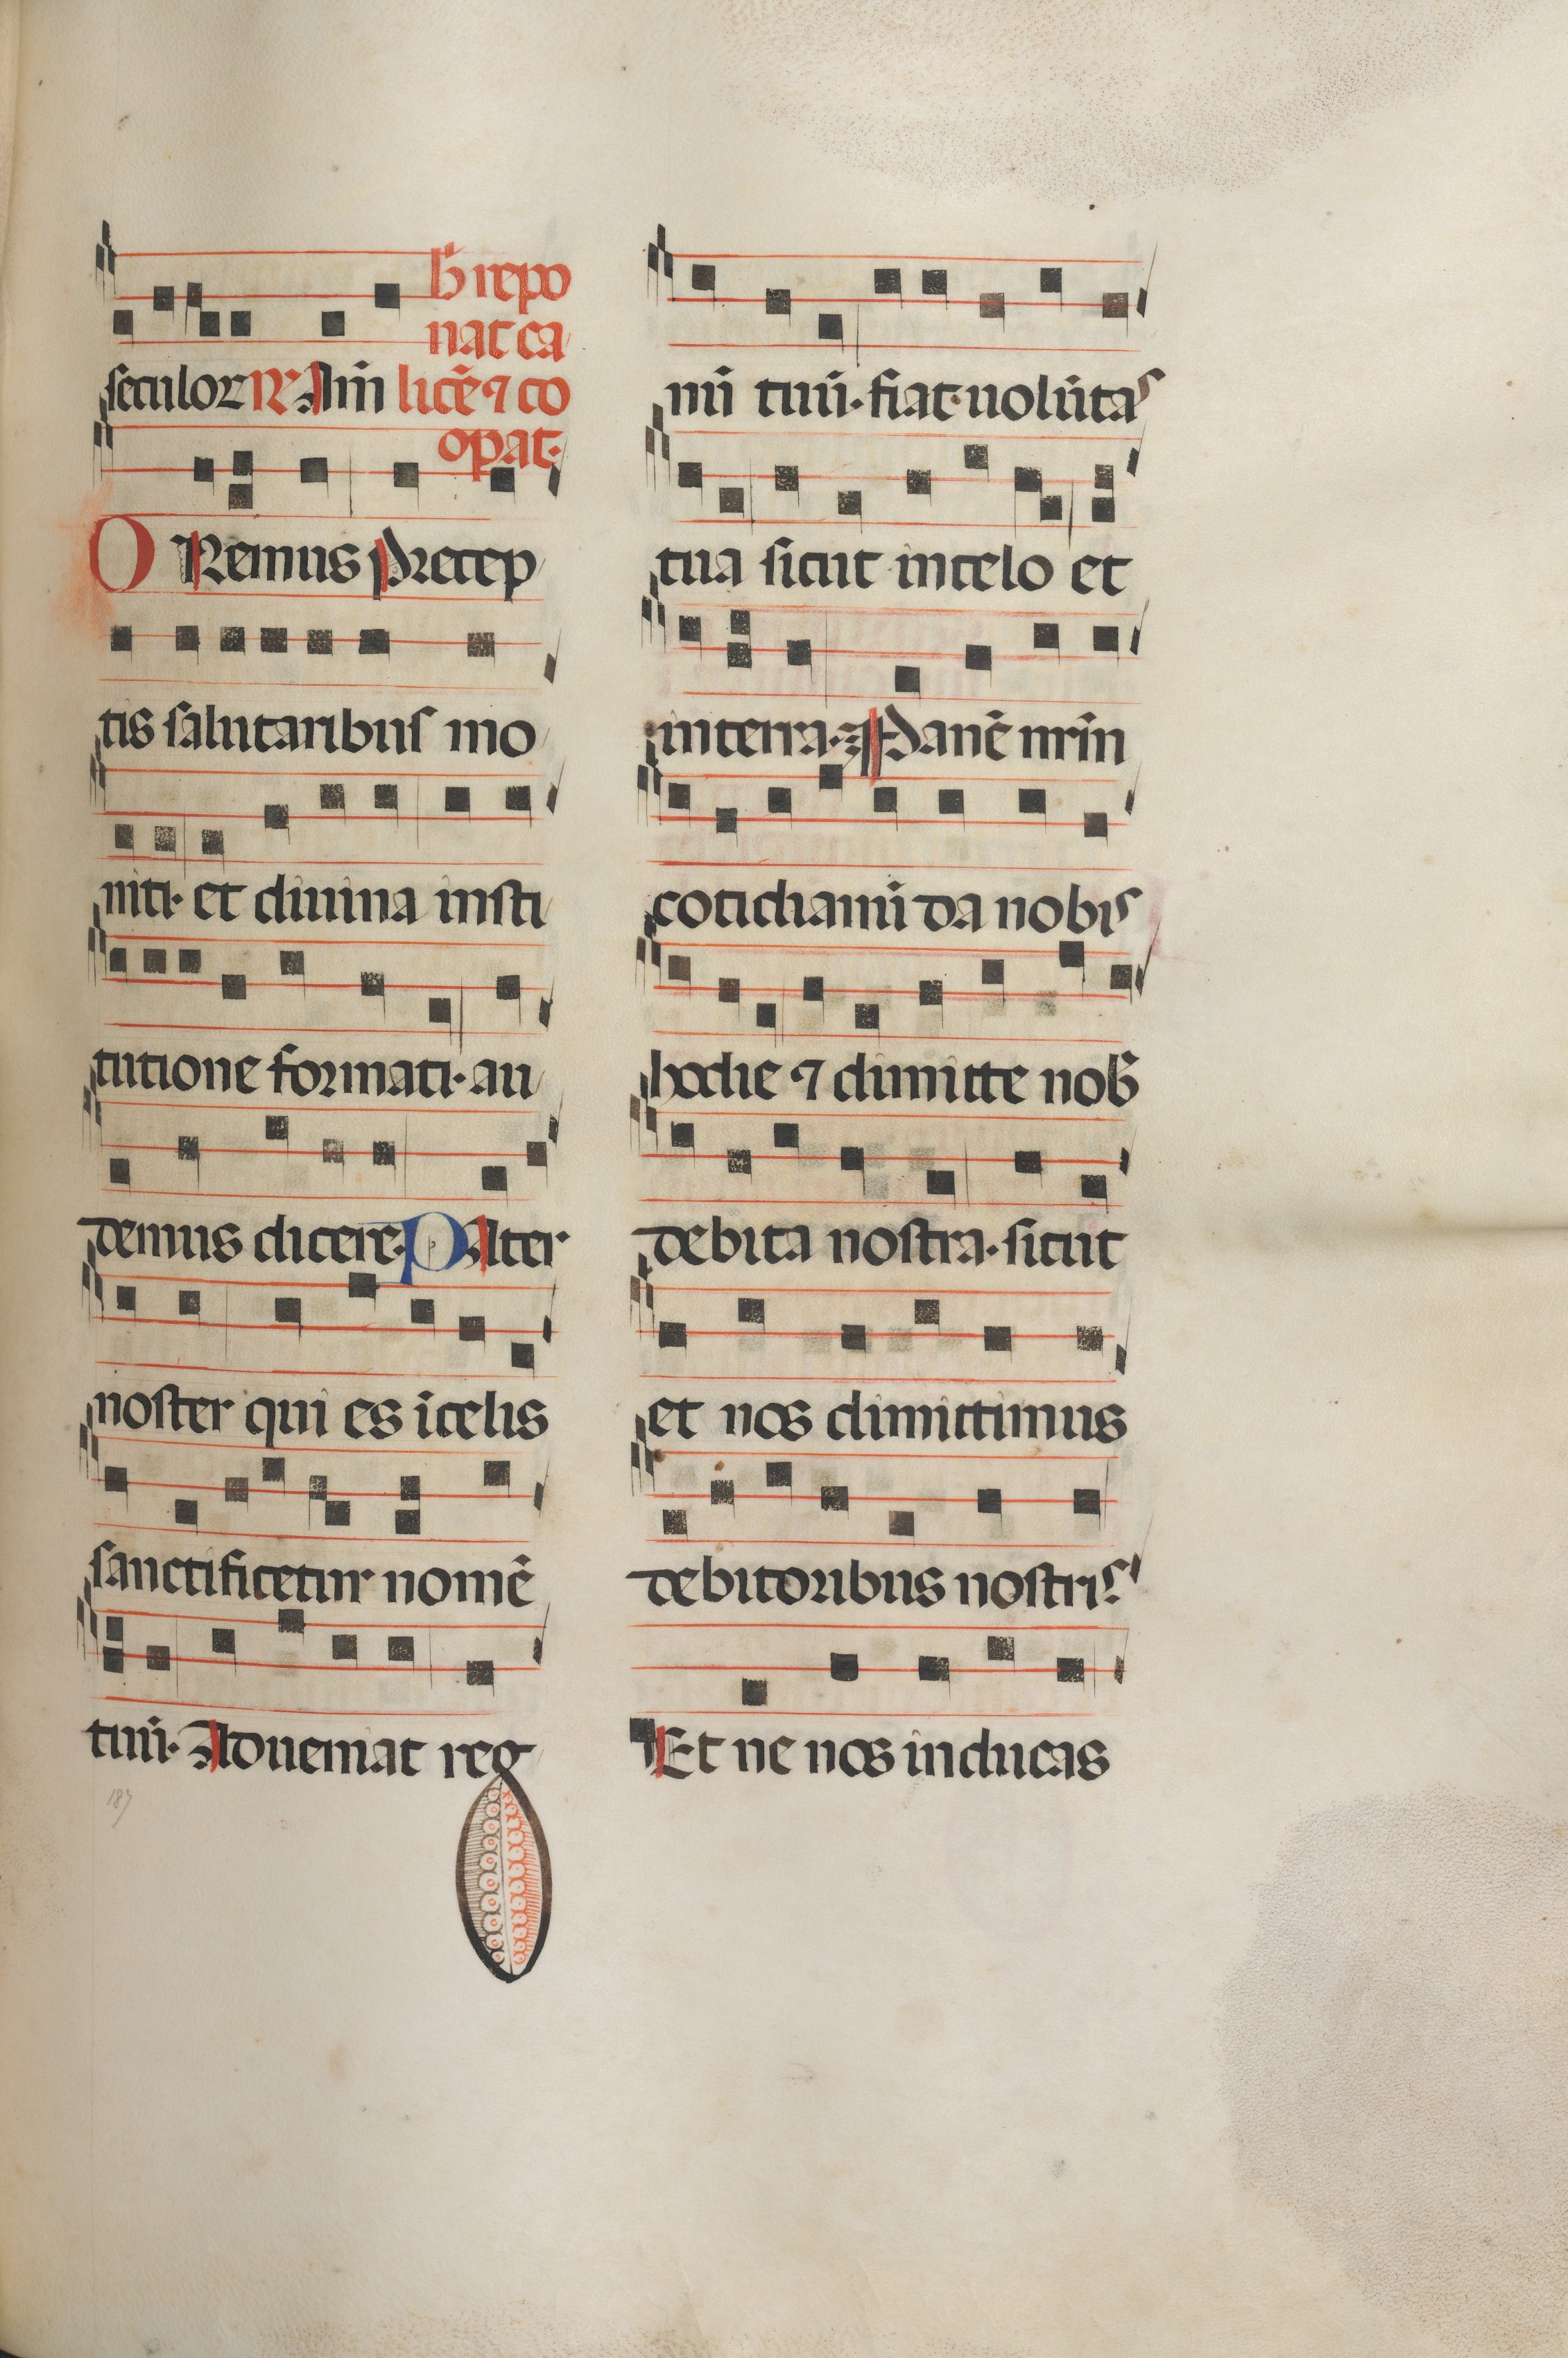 h̄ repo
nat ca
seculoꝝ ℟ Am̄ licē ⁊ co
opat·
ORemus Precep
tis salutaribus mo
niti· et diuina insti
tutione formati· au
demus dicere· PAter
noster qui es i celis
sanctificetur nomē
tuū· Adueniat reg
187
nū tuū· fiat uolūtas
tua sicut in celo et
in terra· Panē nr̄m
cotidianū da nobis
hodie ⁊ dimitte nob̄
debita nostra· sicut
et nos dimittimus
debitoribus nostris·
Et ne nos inducas